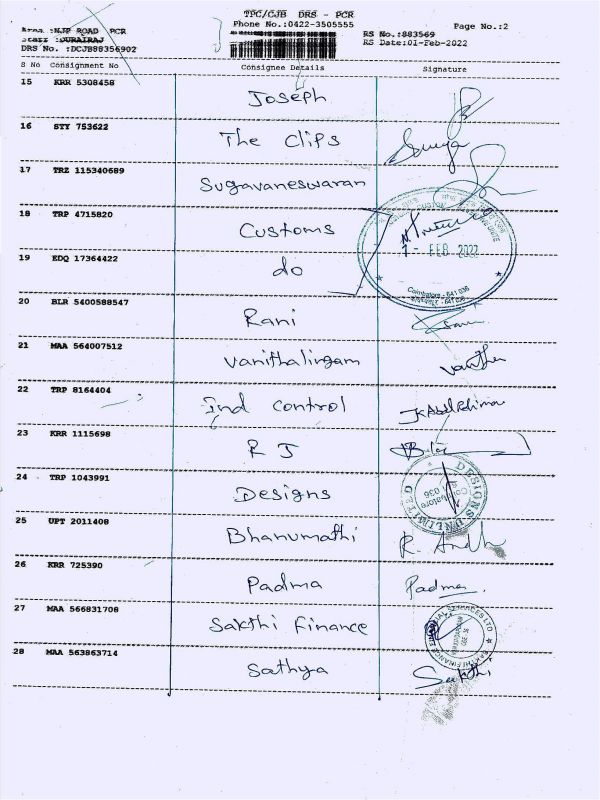 TPC/CJB DRS - PCR
Phone No.:0422-3505555
Page No.:2
Area :NJP ROAD PCR
Staff :DURAIRAJ
DRS No. :DCJB88356902
RS No.:883569
RS Date:01-Feb-2022
S No Consignment No Consignee Details Signature
15 KRR 5308458 Joseph
16 STY 753622 The Clips Surya
17 TRZ 115340689 Sugavaneswaran
18 TRP 4715820 Customs
1- FEB 2022
19 EDQ 17364422 do
Coimbatore - 641 036
20 BLR 5400588547 Rani Rani
21 MAA 564007512 Vanithalingam Vanitha
22 TRP 8164404 Ind control
23 KRR 1115698 R J
24 TRP 1043991 Designs
DESIGNS UNLIMITED
Coimbatore
036
25 UPT 2011408 Bhanumathi
26 KRR 725390 Padma Padma
27 MAA 566831708 Sakthi Finance
SAKTHI FINANCIAL SERVICES LTD
28 MAA 563863714 Sathya Sakthi